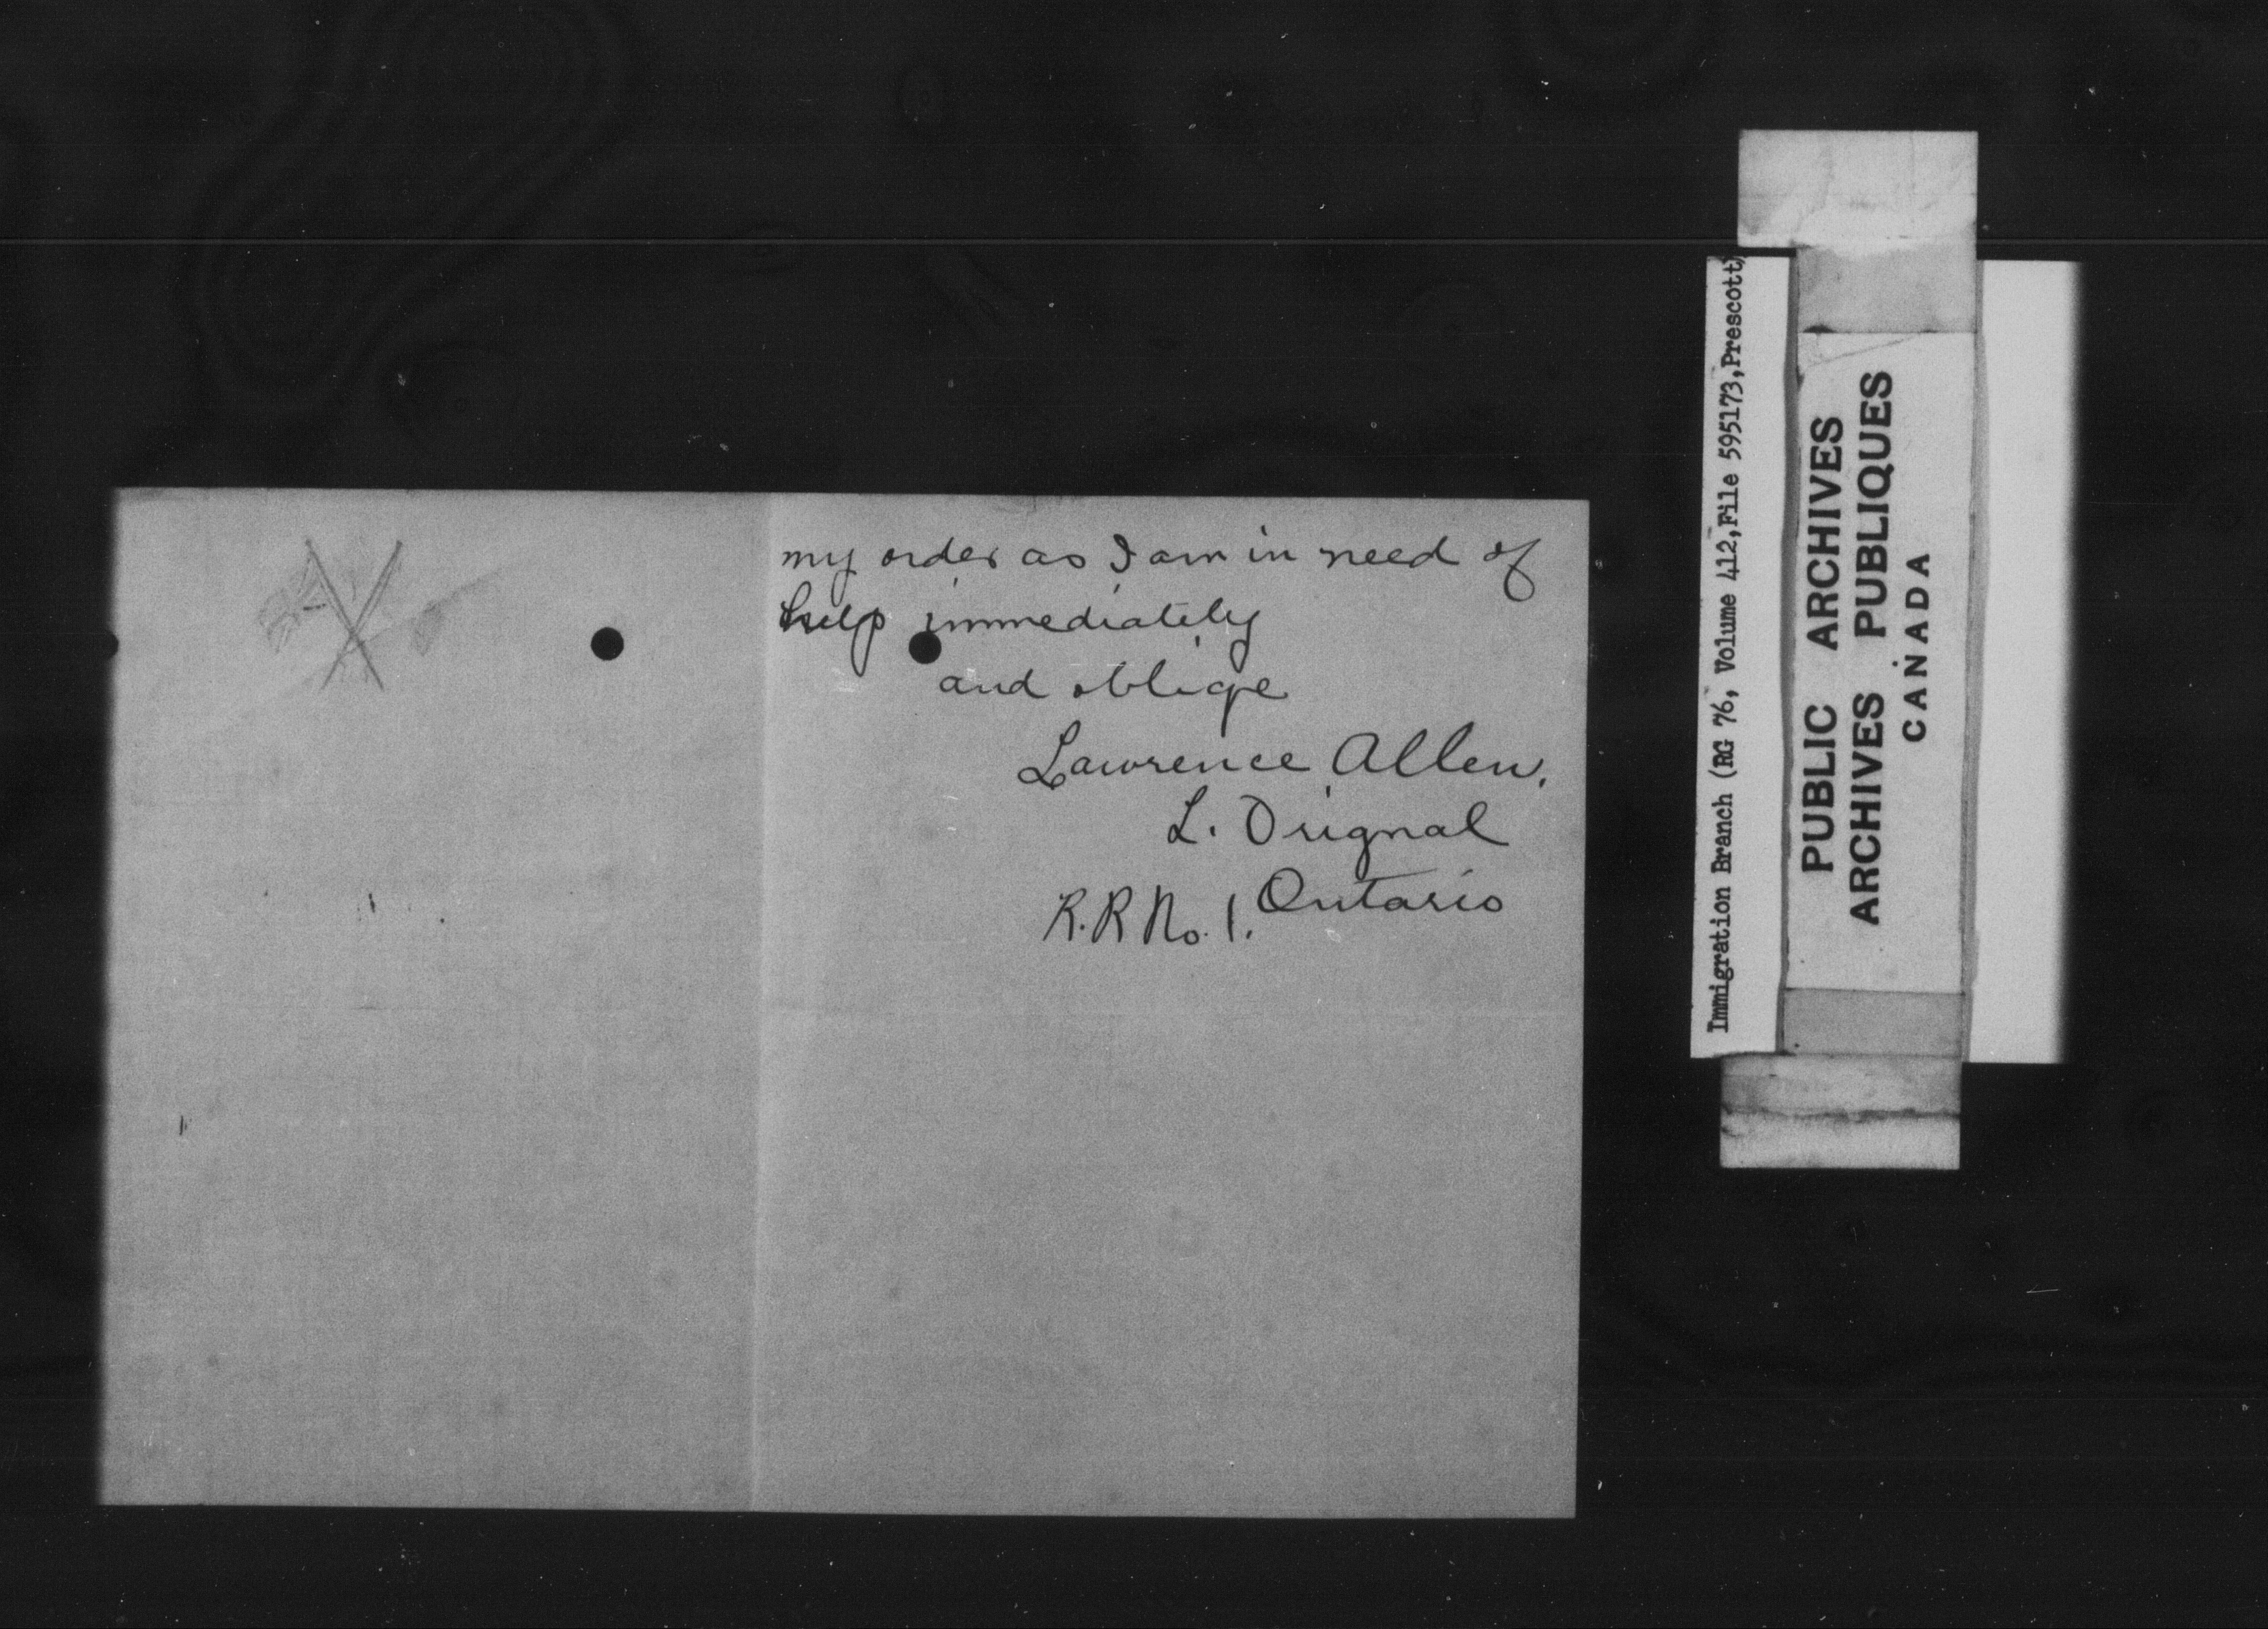 my order as I am in need of
help immediately
and oblige
Lawrence Allen.
L. Orignal
Ontario
R.R No. 1.
Immigration Branch (RG 76, Volume 412,File 595173,Prescott)
PUBLIC ARCHIVES
ARCHIVES PUBLIQUES
CANADA